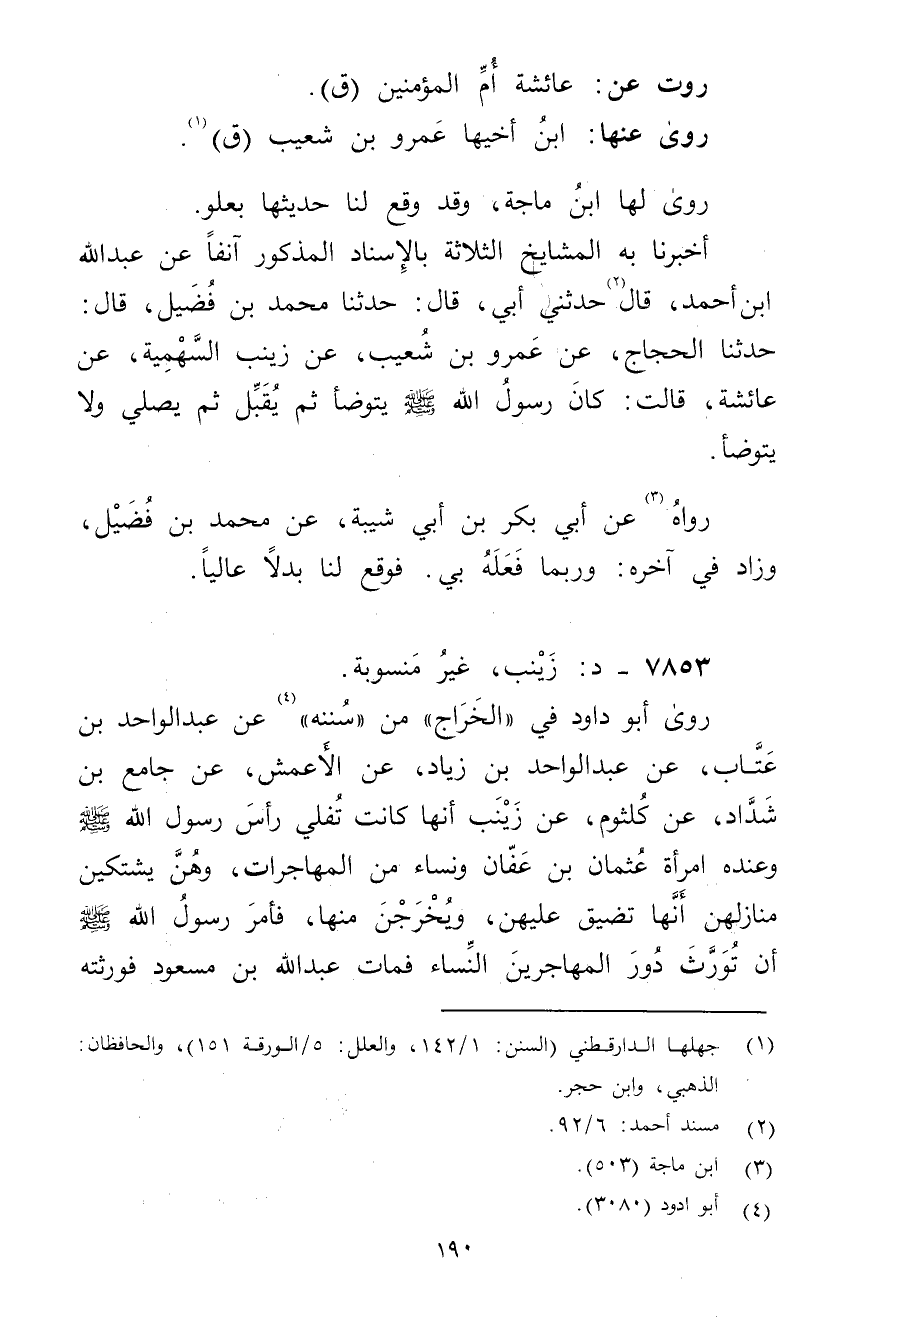 روت عن: عائشة أُمِّ المؤمنين (ق).
روىٰ عنها: ابنُ أخيها عَمرو بن شعيب (ق)(١).
روىٰ لها ابنُ ماجة، وقد وقع لنا حديثها بعلو.
أخبرنا به المشايخ الثلاثة بالإِسناد المذكور آنفاً عن عبدالله
ابن أحمد، قال(٢) حدثني أبي، قال: حدثنا محمد بن فُضَيل، قال:
حدثنا الحجاج، عن عَمرو بن شُعيب، عن زينب السَّهْمية، عن
عائشة، قالت: كانَ رسولُ الله ﷺ يتوضأ ثم يُقَبِّل ثم يصلي ولا
يتوضأ.
رواهُ(٣) عن أبي بكر بن أبي شيبة، عن محمد بن فُضَيْل،
وزاد في آخره: وربما فَعَلَهُ بي. فوقع لنا بدلًا عالياً.
٧٨٥٣ - د: زَيْنب، غيرُ مَنسوبة.
روىٰ أبو داود في «الخَرَاج» من «سُننه»(٤) عن عبدالواحد بن
عَتَّاب، عن عبدالواحد بن زياد، عن الأَعمش، عن جامع بن
شَدَّاد، عن كُلثوم، عن زَيْنَب أنها كانت تُفلي رأسَ رسول الله ﷺ
وعنده امرأة عُثمان بن عَفّان ونساء من المهاجرات، وهُنَّ يشتكين
منازلهن أَنَّها تضيق عليهن، ويُخْرَجْنَ منها، فأمرَ رسولُ الله ﷺ
أن تُوَرَّثَ دُورَ المهاجرينَ النِّساء فمات عبدالله بن مسعود فورثته
(١) جهلها الدارقطني (السنن: ١٤٢/١، والعلل: ٥/الورقة ١٥١)، والحافظان:
الذهبي، وابن حجر.
(٢) مسند أحمد: ٩٢/٦.
(٣) ابن ماجة (٥٠٣).
(٤) أبو ادود (٣٠٨٠).
١٩٠